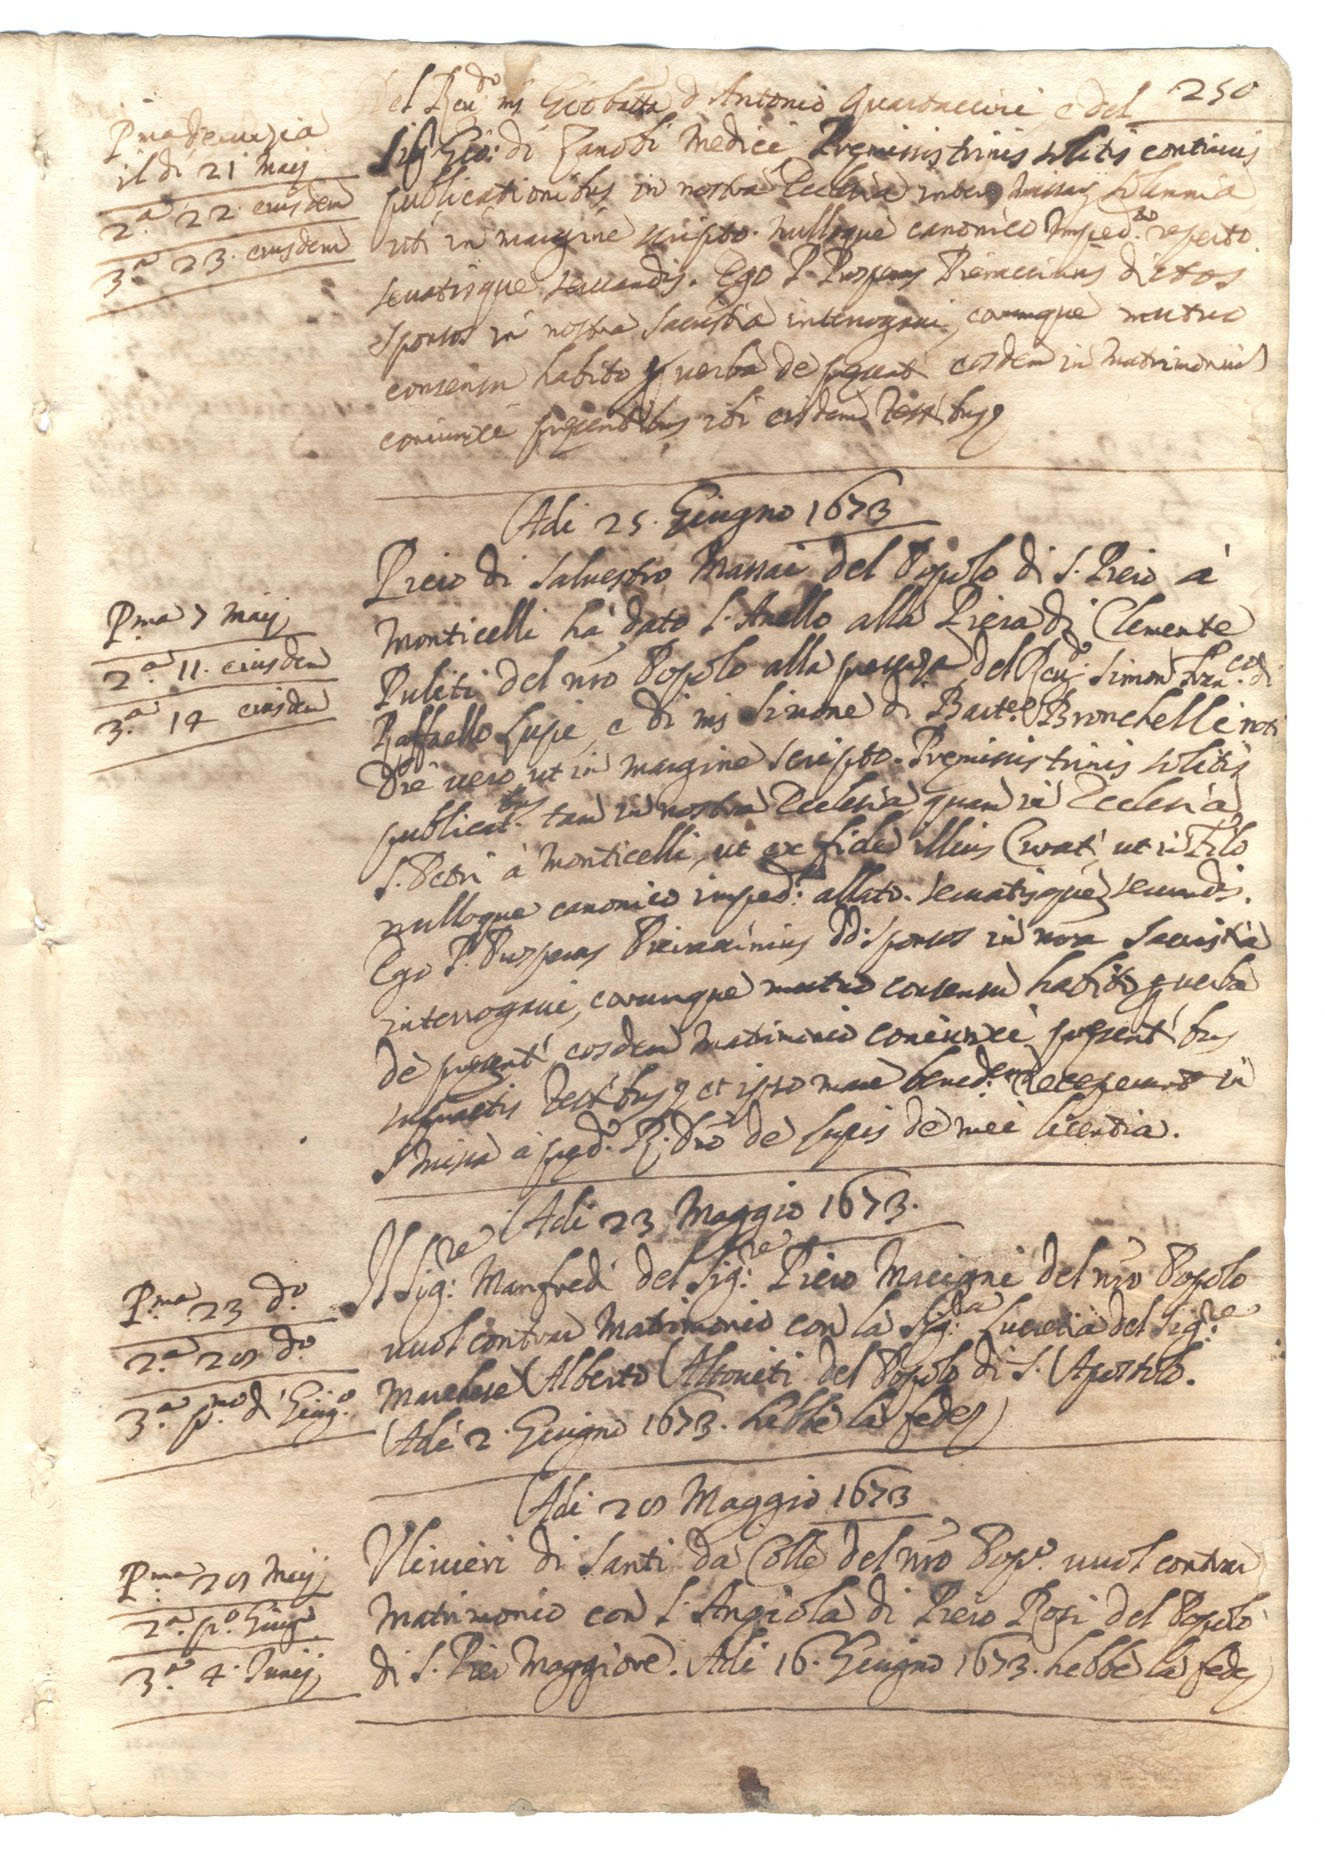 250
del Reu.do ms Gio batta d'Antonio Guardaccini, e del
Sig Gio: di Zanobi Medici, Premissis trinis solitis continuis
publicationibus in nostra Ecclesia inter missarum solemnia
uti in margine scripto. nulloque canonico Imped.to reperto
seruatisque seruandis. Ego P. Prosper dictos
sponsos in nostra sacristia interrogaui, eorumque mutuo
consensu habito p uerba de presenti eosdem in matrimonium
coniunxi presentibus ibi eisdem testibus
Pma denunzia
il di 21 maij
2.a 22. eiusdem
3.a 23. eiusdem
Adi 25. Giugno 1673
Piero di Saluestro Massai del Popolo di S. Piero à
Monticelli hà dato l'Anello alla Piera di Clemente
Puliti del nro Popolo alla presenza del Reu.do Simon Fran.co di
Raffaello Lupi, e di ms Simone di Bart.eo Bronchelli noti
Die uero ut in margine scripto. Premissis trinis solitis
publicat.bus tam in nostra Ecclesia quam in Ecclesia
S. Petri à Monticelli, ut ex fide illius Curati ut in Filo
nulloque canonico imped.o allato. seruatisque seruandis.
Ego P. Prosper dd: sponsos in nora Sacristia
interrogaui, eorumque mutuo consensu habito p uerba
de presenti eosdem matrimonio coniunxi presentibus
infrascriptis testibus et ipso mane bened.em receperunt in
S missa à pred.o R: Dno de Lupis de mei licentia.
Pma 7 maij
2.a 11. eiusdem
3.a 14 eiusdem
Adi 23 Maggio 1673.
Il Sig:re Manfredi del Sig:re Piero Macigni del nro Popolo
uuol contrar Matrimonio con la Sig:ra Lucretia del Sig:re
Marchese Alberto Altouiti del Popolo di S. Apostolo.
Adi 2. Giugno 1673. hebbe la fede
Pma 23 do.
2.a 28 do.
3.a pmo di Giug.o
Adi 28 Maggio 1673
Uliuieri di Santi da Colle del nro Popo. uuol contrar
matrimonio con l'Angiola di Piero Rosi del Popolo
di S. Pier Maggiore. Adi 16. Giugno 1673. hebbe la fede
Pma 28 Maij
2.a po. Giug.
3.a 4. Junij